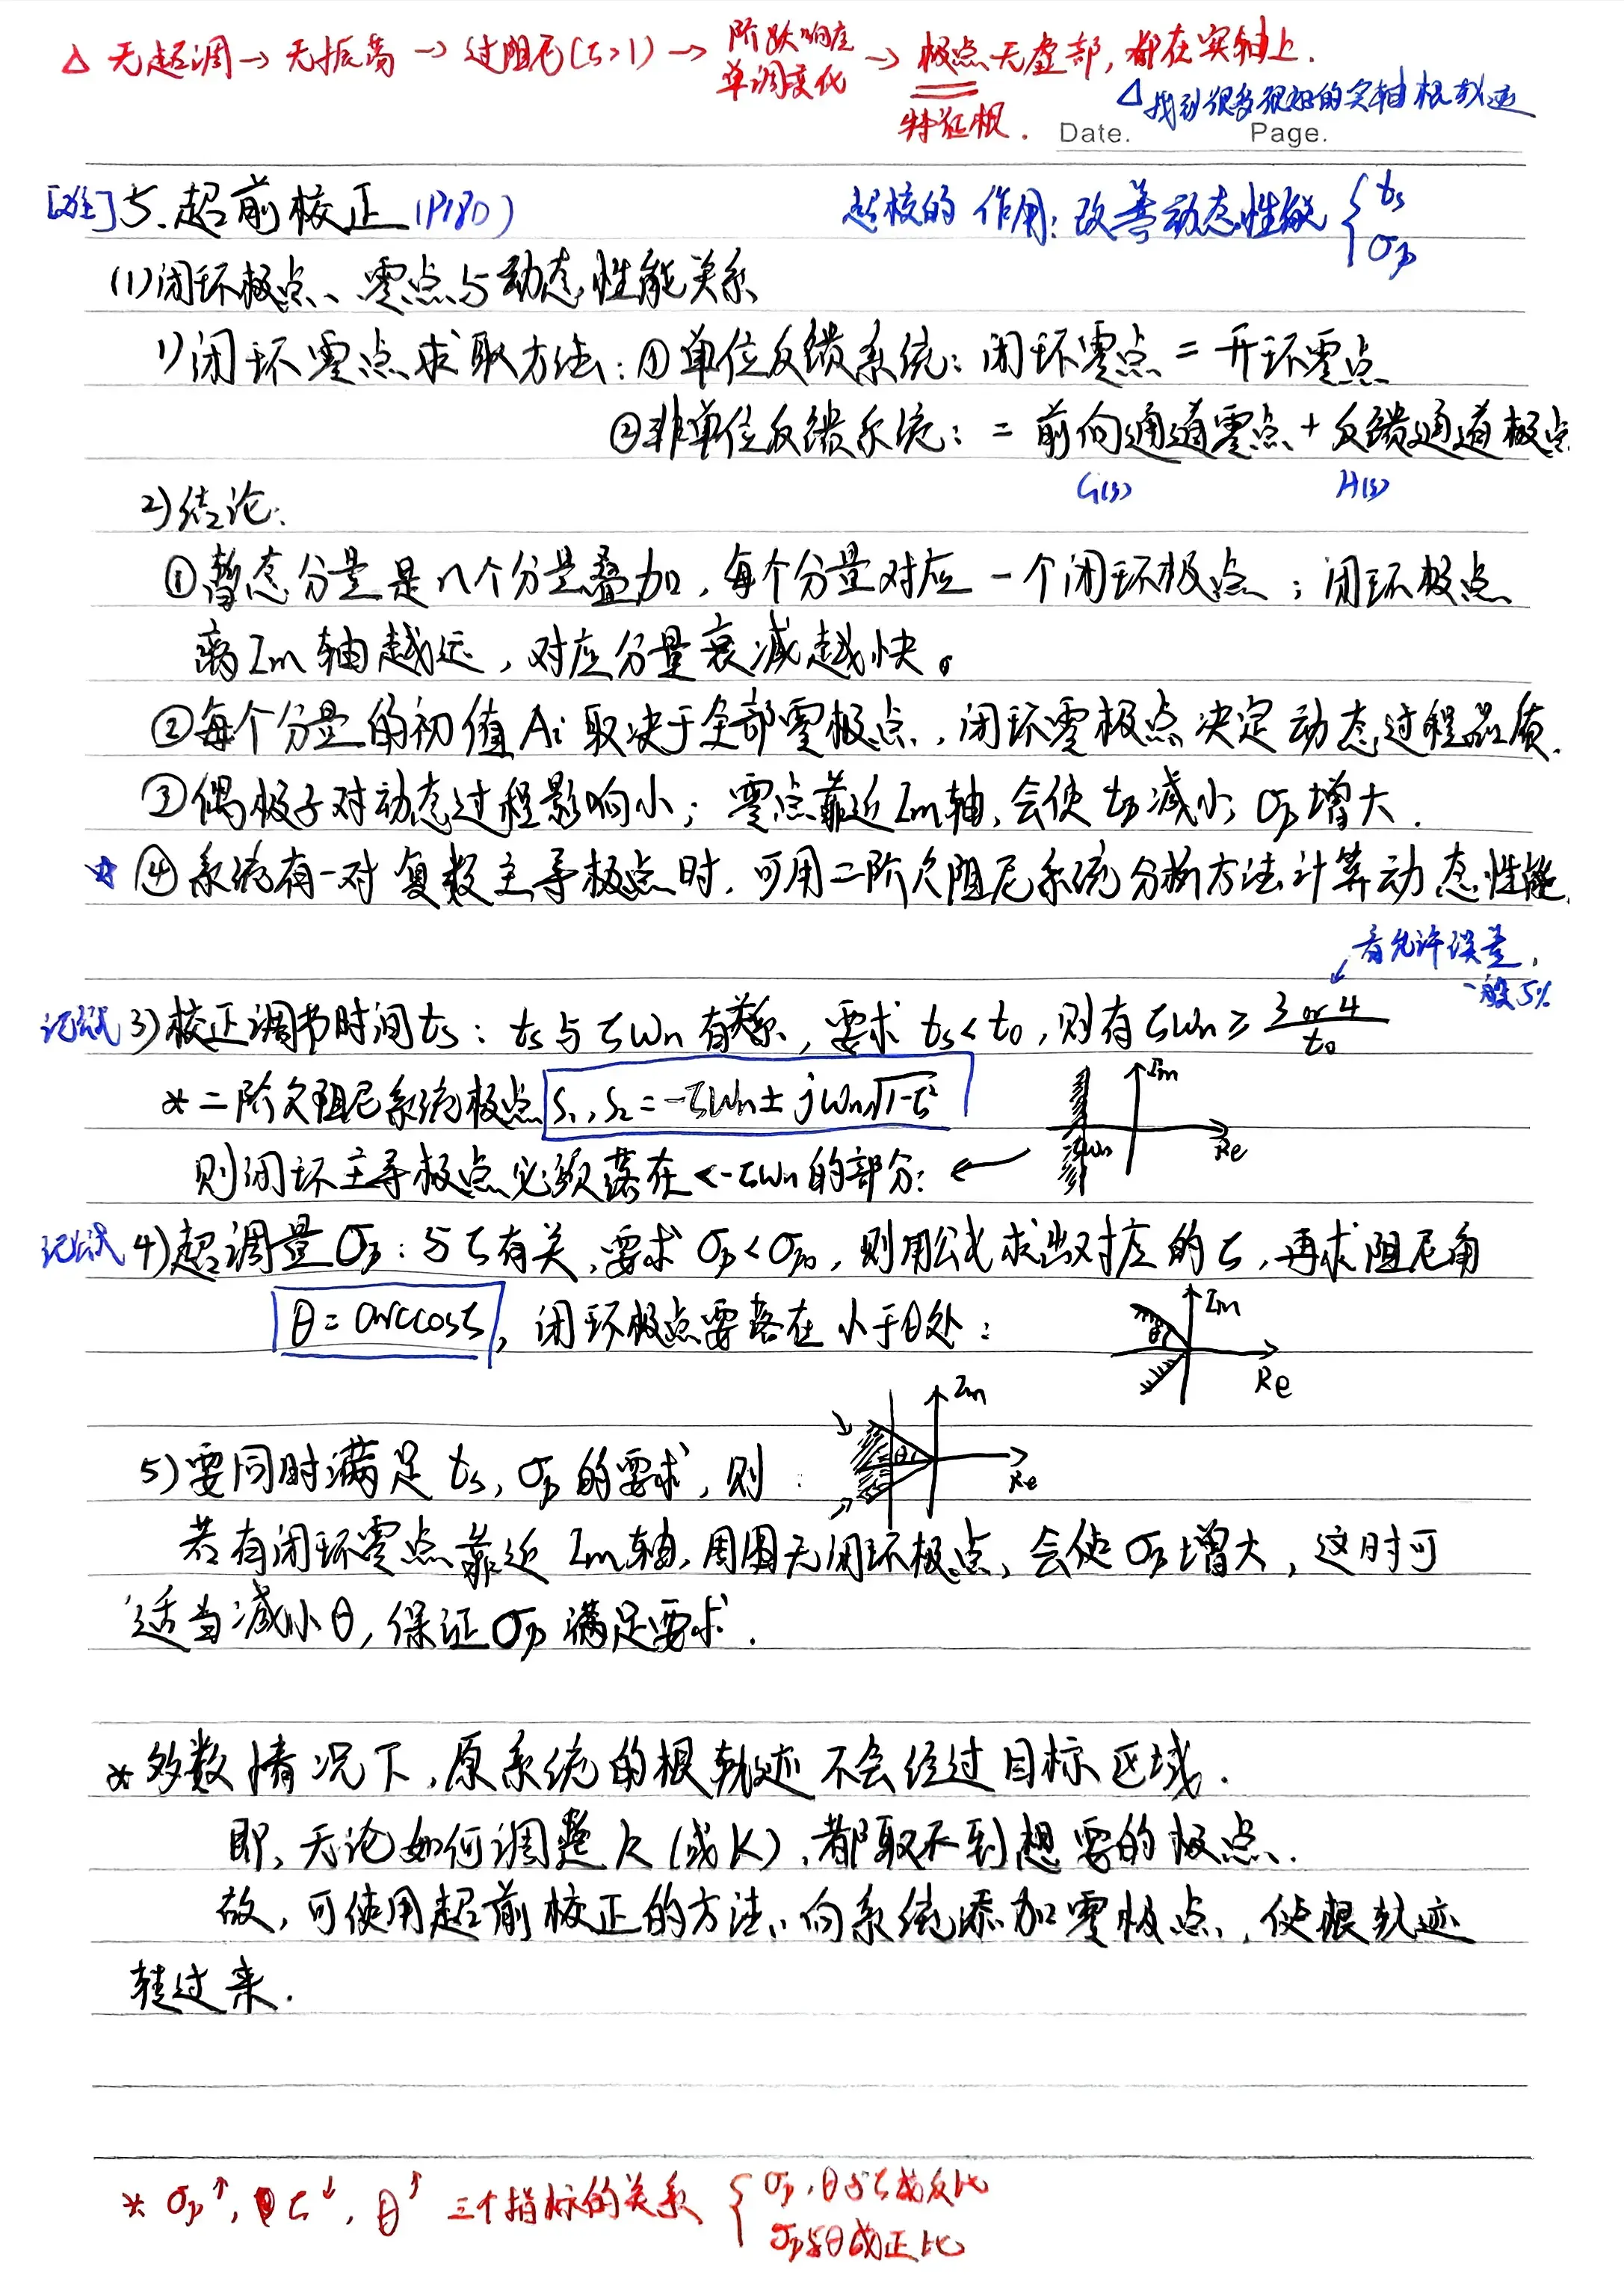 △ 无超调→无振荡→过阻尼(ζ>1)→阶跃响应单调变化→极点无虚部,都在实轴上.
特征根.
△找到很多现招的实轴根轨迹
Date. Page.
5.超前校正(P180)
超校的作用:改善动态性能{ts
σp
(1)闭环极点、零点与动态性能关系
1)闭环零点求取方法:①单位反馈系统:闭环零点=开环零点
②非单位反馈系统:=前向通道零点+反馈通道极点
G(s) H(s)
2)结论:
①暂态分量是n个分量叠加,每个分量对应一个闭环极点;闭环极点
离Im轴越远,对应分量衰减越快。
②每个分量的初值Ai取决于全部零极点,闭环零极点决定动态过程品质.
③偶极子对动态过程影响小;零点靠近Im轴,会使tp减小,σp增大.
☆④系统有一对复数主导极点时,可用二阶欠阻尼系统分析方法计算动态性能.
看允许误差,
一般5%
记公式 3)校正调节时间ts:ts与ζωn有关系,要求ts<t0,则有ζωn≥3 or 4/t0
*二阶欠阻尼系统极点 S1,S2=-ζωn±jωn√1-ζ²
Im
-ζωn
Re
则闭环主导极点必须落在<-ζωn的部分:←
记公式 4)超调量σp:与ζ有关,要求σp<σp0,则用公式求出对应的ζ,再求阻尼角
θ=arccosζ,闭环极点要落在小于θ处:
Im
θ
Re
Im
θ
Re
5)要同时满足ts,σp的要求,则:
若有闭环零点靠近Im轴,周围无闭环极点,会使σp增大,这时可
适当减小θ,保证σp满足要求.
*多数情况下,原系统的根轨迹不会经过目标区域.
即,无论如何调整k(或K),都取不到想要的极点.
故,可使用超前校正的方法,向系统添加零极点,使根轨迹
转过来.
* σp↑, ζ↓, θ↑ 三个指标的关系{σp,θ与ζ成反比
σp与θ成正比